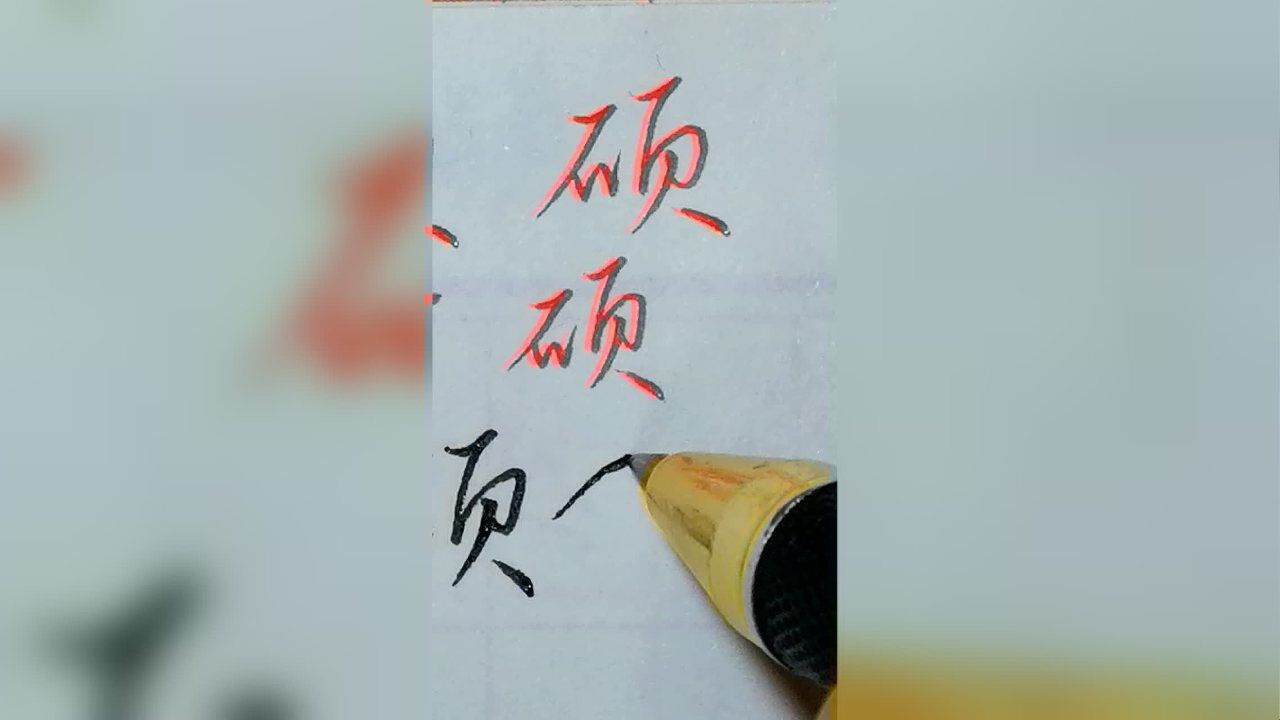 硕
硕
页